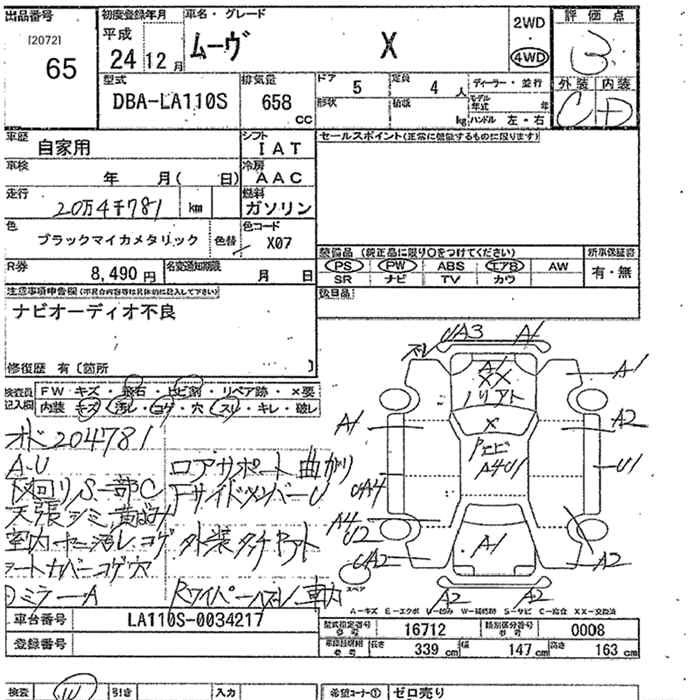 出品番号
[2072]
65
初度登録年月
平成
24 12月
車名・グレード
ムーヴ X
2WD
4WD
評価点
3
外装 内装
C D
型式
DBA-LA110S
排気量
658 cc
ドア 5
定員 4 人
形状
積載 kg
ディーラー・並行
モデル年式 年
ハンドル 左・右
車歴 自家用
シフト IAT
セールスポイント(正常に機能するものに限ります)
車検 年 月( 日)
冷房 AAC
走行 20万4千781 km
燃料 ガソリン
色 ブラックマイカメタリック 色替
色コード X07
装備品 (純正品に限り○をつけてください)
新車保証書
PS PW ABS エアB AW
SR ナビ TV カワ
有・無
R券 8,490 円
名変通知期限 月 日
注意事項申告欄
後日品
ナビオーディオ不良
修復歴 有〔箇所 〕
検査員記入欄
FW キズ・飛石・ヒビ割・リペア跡・×要
内装 キズ・汚レ・コゲ・穴・スリ・キレ・破レ
UA3 A1
A1
A1
XX
A1
A2
X
A4U1
U1
UA4
A4
U2
UA2
A1
A2
A2 A2
スペア
204781
A-U
ロアサポート曲がり
下回りS一部C
FサイドメンバーU
天張シミ
室内ヤニ汚レコゲ
外装タッチアト
シートカバーコゲ穴
ミラーA
A-キズ E-エクボ U-凹み W-補修跡 S-サビ C-腐食 XX-交換済
車台番号 LA110S-0034217
登録番号
型式指定番号 16712
類別区分番号 0008
長さ 339 cm
幅 147 cm
高さ 163 cm
検査
引き
入力
希望コーナー① ゼロ売り